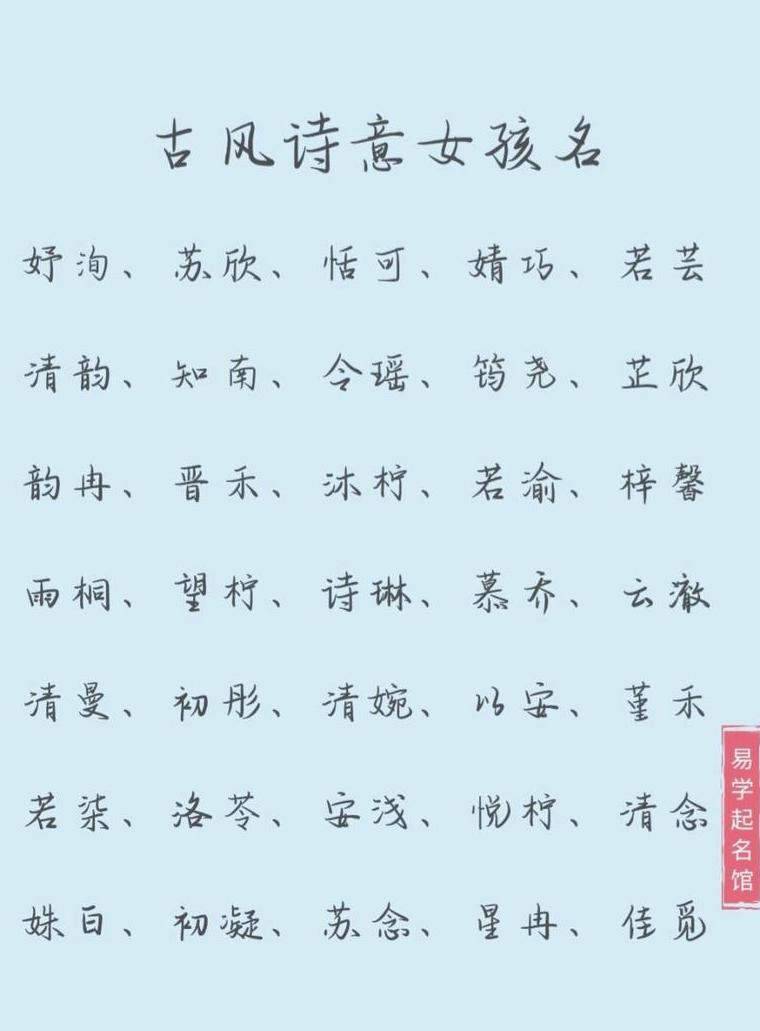 古风诗意女孩名
妤洵、苏欣、恬可、婧巧、若芸
清韵、知南、令瑶、筠尧、芷欣
韵冉、晋禾、沐柠、若渝、梓馨
雨桐、望柠、诗琳、慕乔、云澈
清曼、初彤、清婉、以安、堇禾
若柒、洛苓、安浅、悦柠、清念
姝白、初凝、苏念、星冉、佳觅
易学起名馆